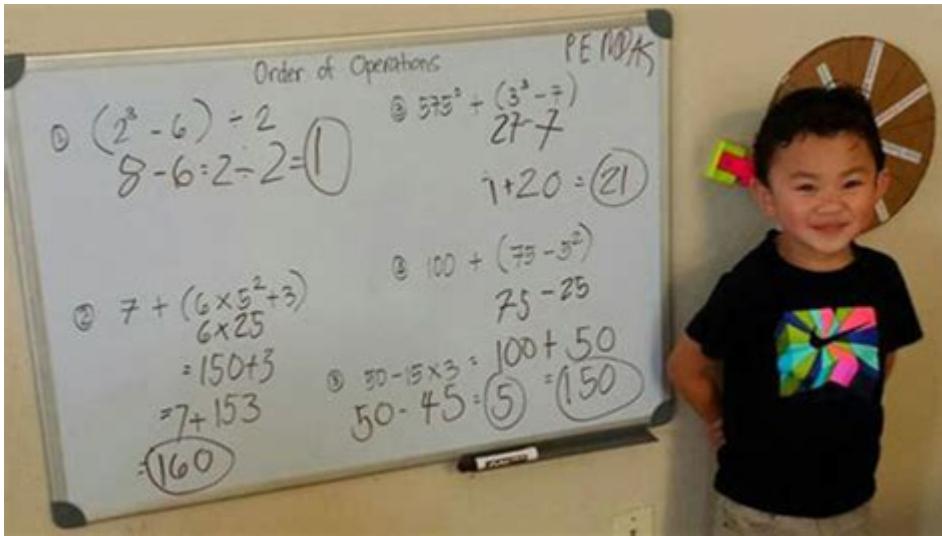 Order of Operations
PEMDAS
① (2³ - 6) ÷ 2
8 - 6 = 2 ÷ 2 = 1
② 7 + (6 × 5² + 3)
6 × 25
= 150 + 3
= 7 + 153
= 160
③ 575⁰ + (3³ - 7)
27 - 7
1 + 20 = 21
③ 100 + (75 - 5²)
75 - 25
= 100 + 50
= 150
⑤ 50 - 15 × 3
50 - 45 = 5